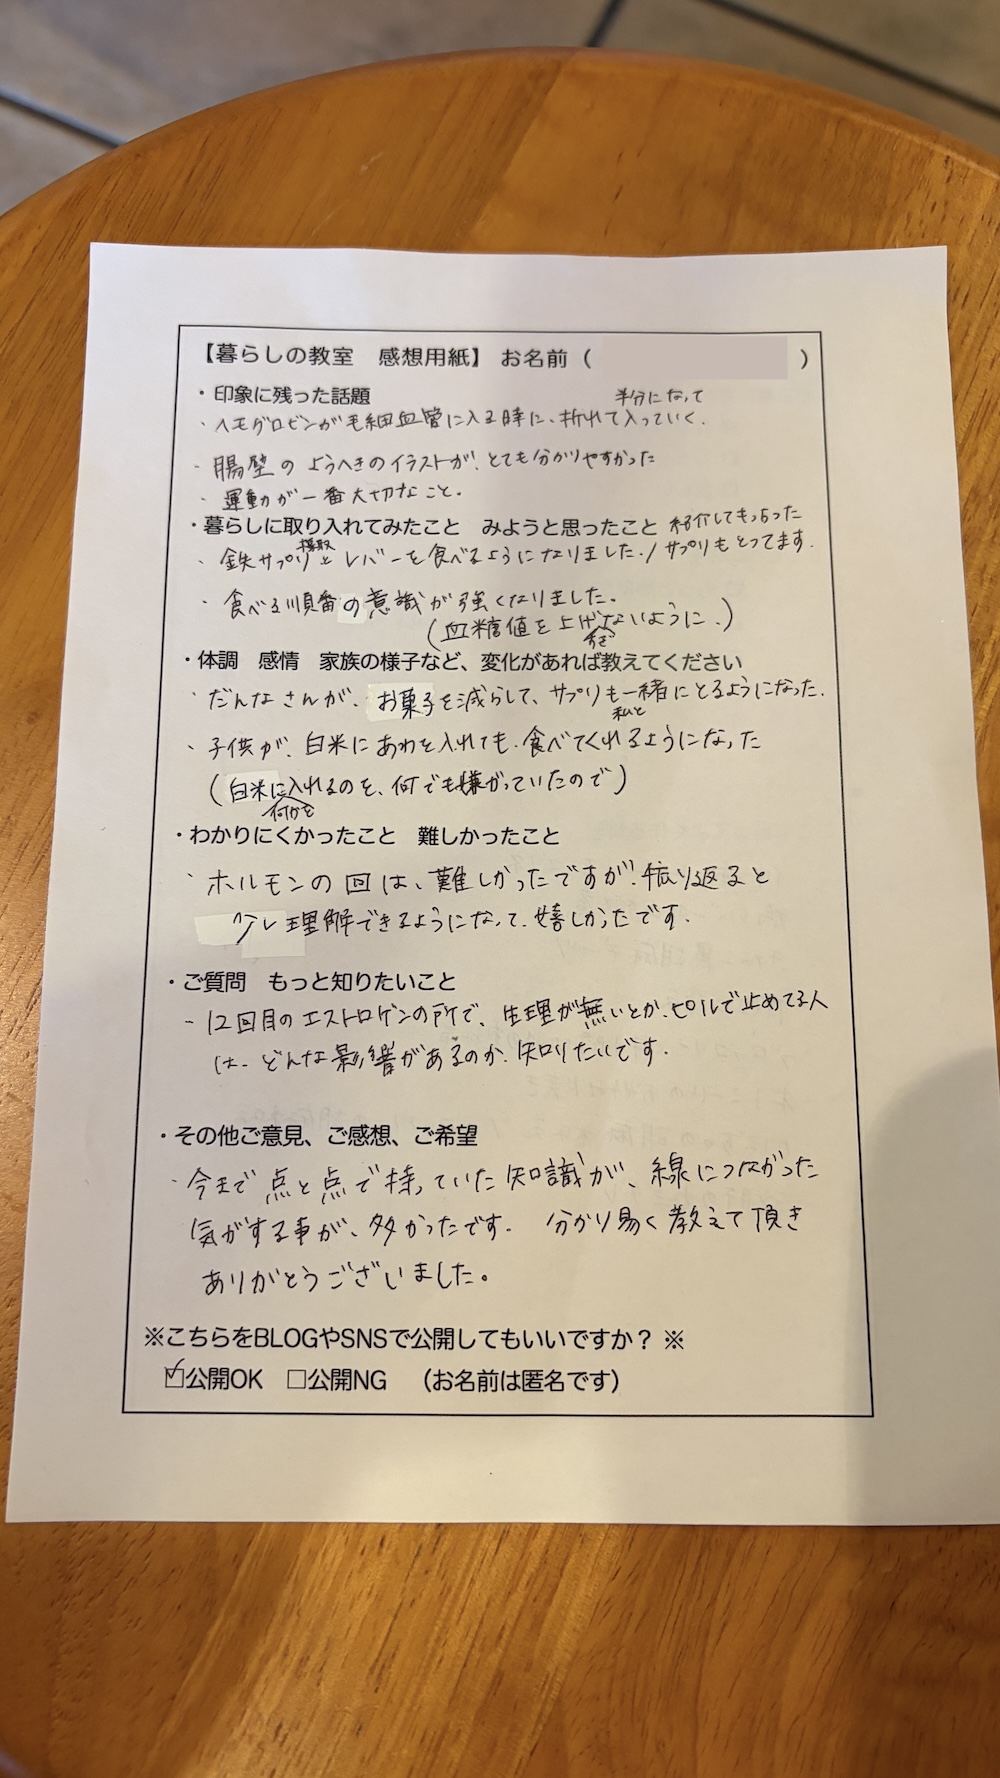 【暮らしの教室　感想用紙】 お名前（　　　　　　）
・印象に残った話題
半分になって
・ヘモグロビンが毛細血管に入る時に、折れて入っていく.
・腸壁の ようへきのイラストが、とても分かりやすかった
・運動が一番大切なこと。
・暮らしに取り入れてみたこと　みようと思ったこと
紹介してもらった
摂取
・鉄サプリとレバーを食べるようになりました./サプリもとってます.
・食べる順番の意識が強くなりました。
(血糖値を上げないように.)
すぎ
・体調　感情　家族の様子など、変化があれば教えてください
・だんなさんが、お菓子を減らして、サプリも一緒にとるようになった.
私と
・子供が、白米にあわを入れても、食べてくれるようになった
(白米に入れるのを、何でも嫌がっていたので)
何かを
・わかりにくかったこと　難しかったこと
・ホルモンの回は、難しかったですが、振り返ると
少し理解できるようになって、嬉しかったです.
・ご質問　もっと知りたいこと
- 12回目のエストロゲンの所で、生理が無いとか、ピルで止めてる人
は、どんな影響があるのか、知りたいです.
・その他ご意見、ご感想、ご希望
・今まで点と点で持っていた知識が、線につながった
気がする事が、多かったです. 分かり易く教えて頂き
ありがとうございました。
※こちらをBLOGやSNSで公開してもいいですか？ ※
☑公開OK　□公開NG　（お名前は匿名です）